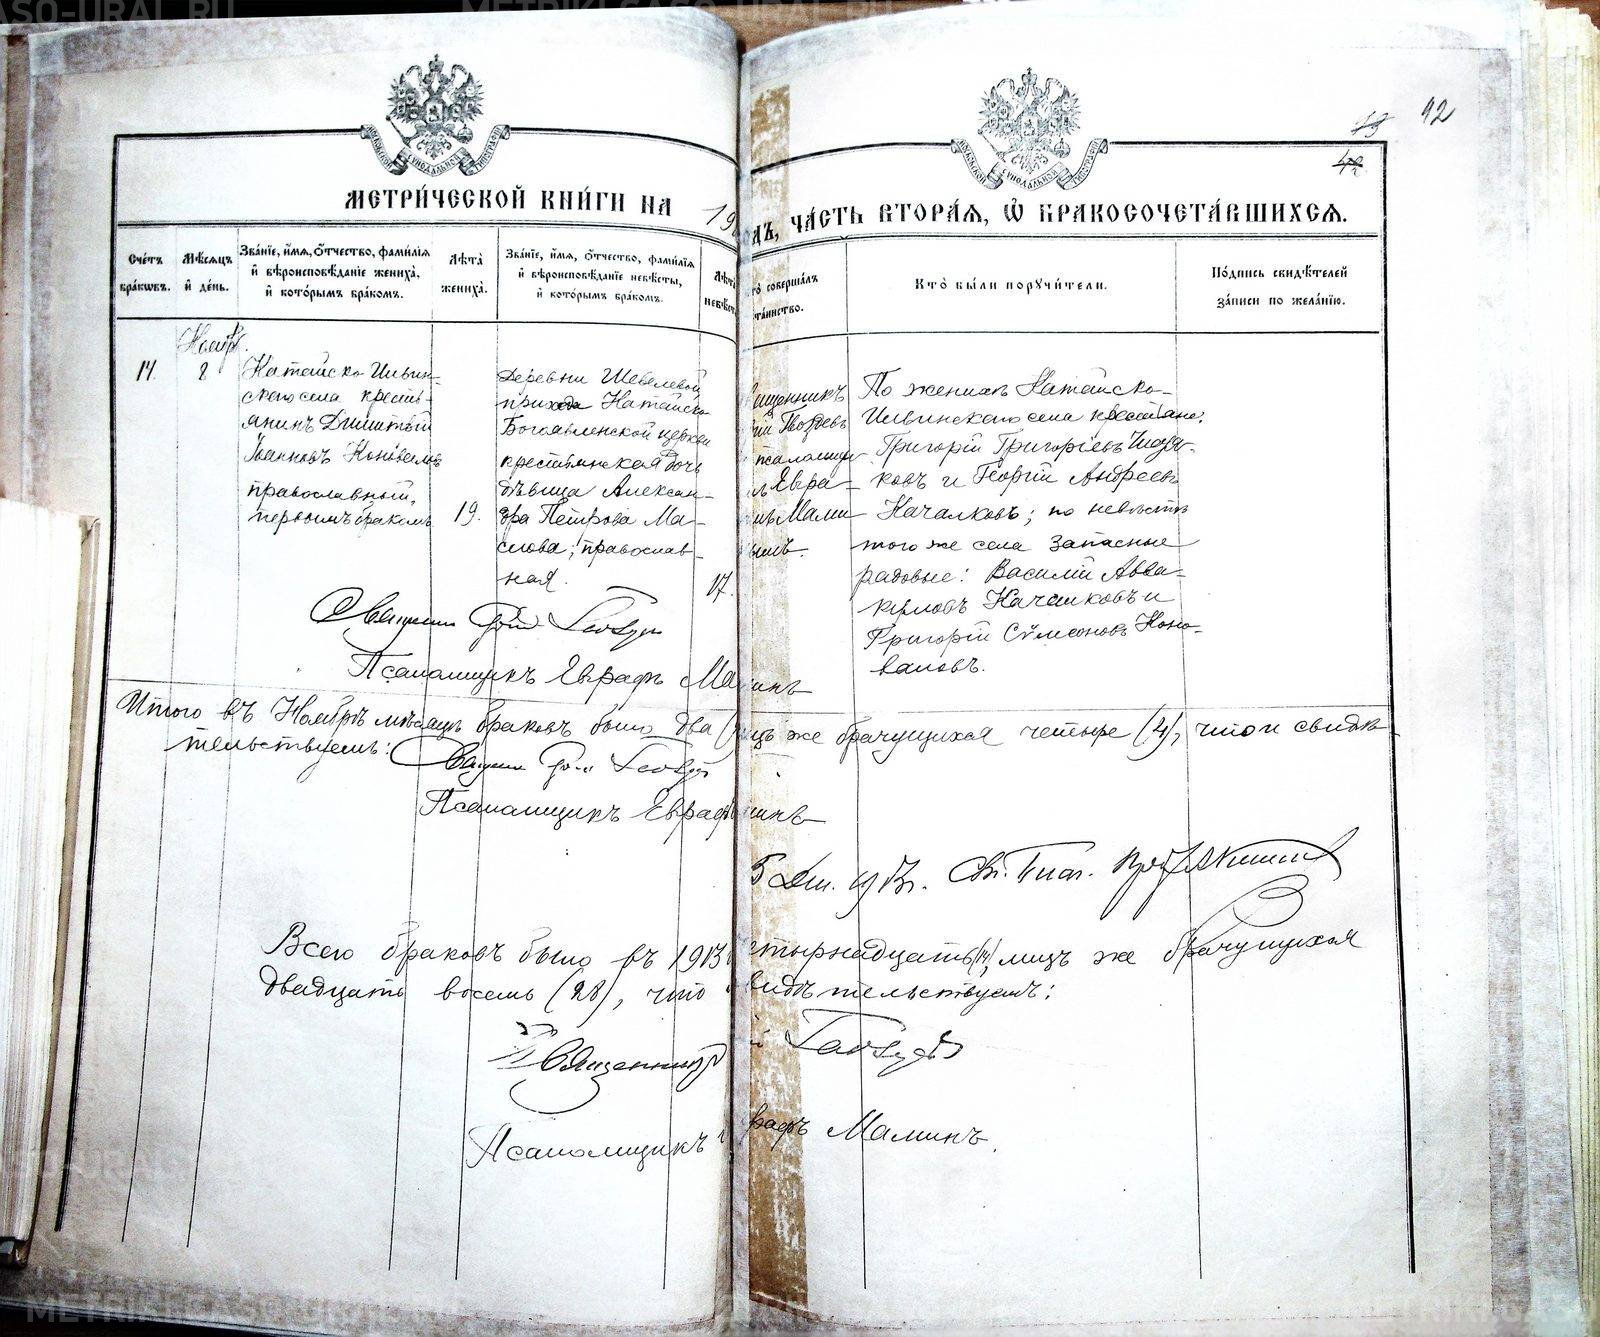 METRIKI.GASO-URAL.RU
42
МЕТРИ́ЧЕСКОЙ КНИ́ГИ НА 19
ДЪ, ЧА́СТЬ ВТОРА́Я, Ѡ БРАКОСОЧЕТА́ВШИХСЯ.
Сче́тъ бра́кѡвъ.
Мѣ́сяцъ и де́нь.
Зва́нїе, и́мя, ѻ҆́тчество, фами́лїя и вѣроисповѣ́данїе жениха̀, и кото́рымъ бра́комъ.
Лѣ́та жениха̀.
Зва́нїе, и́мя, ѻ҆́тчество, фами́лїя и вѣроисповѣ́данїе невѣ́сты, и кото́рымъ бра́комъ.
Лѣ́та невѣ́с
то̀ соверша́лъ та́инство.
Кто̀ бы́ли порꙋчи́тели.
По́дпись свидѣ́телей за́писи по жела́нїю.
Ноябр.
14.
8
Катайско-Ильин-
скаго села кресть-
янинъ Димитрій
Іоанновъ Коноваловъ
православный,
первымъ бракомъ
19.
Деревни Шевелевой
прихода Катайско
Богоявленской церкви
крестьянская дочь
дѣвица Алексан-
дра Петрова Ма-
слова; православ-
ная.
17.
ященникъ
псаломщи
лъ Евра-
мъ Мами
нымъ.
По женихѣ Катайско-
Ильинскаго села крестьяне:
Григорій Григорьевъ
ковъ и Георгій Андреевъ
Качалковъ; по невѣстѣ
того же села запасные
рядовые: Василій Авва-
кумовъ Качалковъ и
Григорій Сѵмеоновъ Коно-
валовъ.
Священникъ
Псаломщикъ Евграфъ Маминъ
Итого въ Ноябрѣ мѣсяцѣ браковъ было два лицъ же брачущихся четыре (4), что и свидѣ-
тельствуемъ: Священникъ
Псаломщикъ Евграфъ Маминъ
5 Дек. 1913 г.
Всего браковъ было въ 1913 г четырнадцать (14), лицъ же брачущихся
двадцать восемь (28), что свидѣтельствуемъ:
Священникъ
Псаломщикъ Евграфъ Маминъ.
METRIKI.GASO-URAL.RU